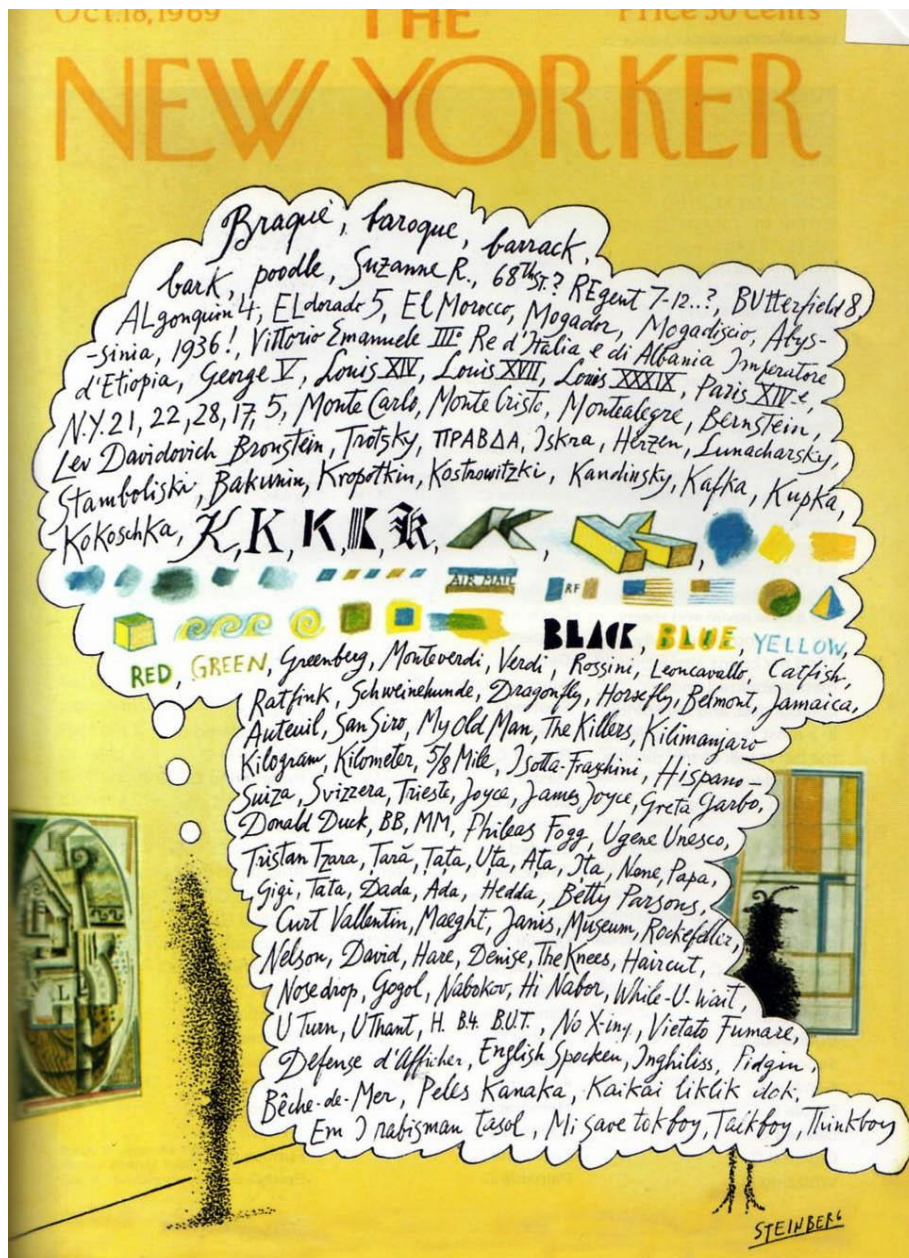 Oct. 18, 1969
THE
Price 50 cents
NEW YORKER
Braque, baroque, barrack,
bark, poodle, Suzanne R., 68th St.? REgent 7-12...?, BUtterfield 8,
ALgonquin 4, ELdorado 5, El Morocco, Mogador, Mogadiscio, Abys-
-sinia, 1936!, Vittorio Emanuele III° Re d'Italia e di Albania Imperatore
d'Etiopia, George V, Louis XIV, Louis XVII, Louis XXXIX, Paris XIV.e,
N.Y. 21, 22, 28, 17, 5, Monte Carlo, Monte Cristo, Montealegre, Bernstein,
Lev Davidovich Bronstein, Trotsky, ПРАВДА, Iskra, Herzen, Lunacharsky,
Stamboliski, Bakunin, Kropotkin, Kostrowitzki, Kandinsky, Kafka, Kupka,
Kokoschka, K, K, K, K, K, K, K,
AIR MAIL RF
BLACK, BLUE, YELLOW,
RED, GREEN, Greenberg, Monteverdi, Verdi, Rossini, Leoncavallo, Catfish,
Ratfink, Schweinehunde, Dragonfly, Horsefly, Belmont, Jamaica,
Auteuil, San Siro, My Old Man, The Killers, Kilimanjaro
Kilogram, Kilometer, 5/8 Mile, Isotta-Fraschini, Hispano-
Suiza, Svizzera, Trieste, Joyce, James Joyce, Greta Garbo,
Donald Duck, BB, MM, Phileas Fogg, Ugene Unesco,
Tristan Tzara, Tară, Tata, Uta, Ata, Ita, Nene, Papa,
Gigi, Tata, Dada, Ada, Hedda, Betty Parsons,
Curt Vallentin, Maeght, Janis, Museum, Rockefeller,
Nelson, David, Hare, Denise, The Knees, Haircut,
Nosedrop, Gogol, Nabokov, Hi Nabor, While-U-Wait,
U Turn, U Thant, H. B4. B.U.T., No X-ing, Vietato Fumare,
Défense d'Afficher, English Spocken, Inghiliss, Pidgin,
Bêche-de-Mer, Peles Kanaka, Kaikai liklik dok,
Em I rabisman tasol, Mi save tokboy, Talkboy, Thinkboy
STEINBERG